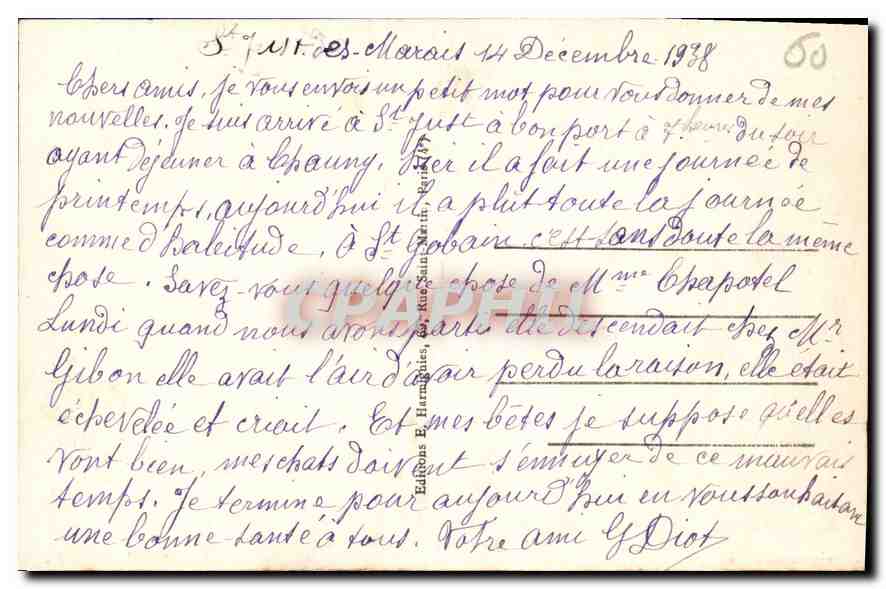 St Just-des-Marais 14 Décembre 1938
60
Chers amis, je vous envois un petit mot pour vous donner de mes
nouvelles. Je suis arrivé à St Just à bon port à 7 heures du soir
ayant déjeuner à Chauny. Hier il a fait une journée de
printemps, aujourd'hui il a plût toute la journée
comme d'habitude, à St Gobain c'est sans doute la même
chose. Savez-vous quelque chose de Mme Chapotel
Lundi quand nous avons partis elle descendait chez Mr
Gibon elle avait l'air d'avoir perdu la raison, elle était
échevelée et criait. Et mes bêtes je suppose qu'elles
vont bien, mes chats doivent s'ennuyer de ce mauvais
temps. Je termine pour aujourd'hui en vous souhaitant
une bonne santé à tous. Votre ami G Diot
Editions E. Harmignies, 69, Rue Saint-Martin, Paris (4e)
CPAPHIL